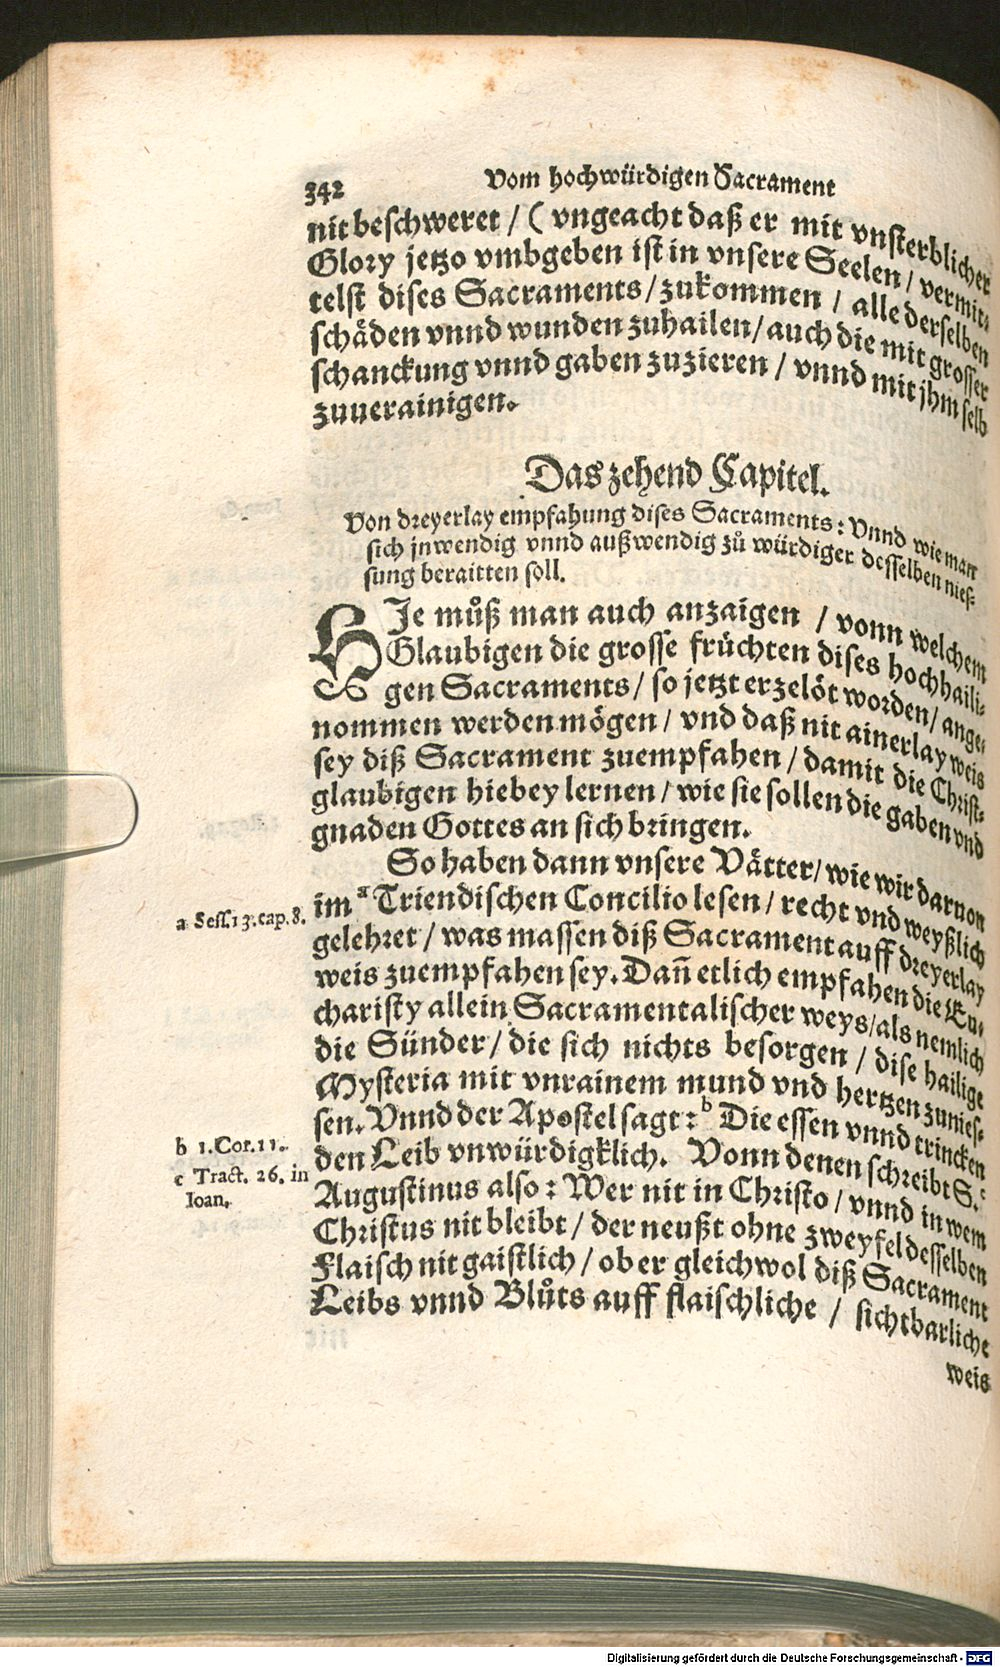 342 Vom hochwürdigen Sacrament
nit beschweret / ( vngeacht daß er mit vnsterblicher
Glory jetzo vmbgeben ist in vnsere Seelen / vermit-
telst dises Sacraments / zukommen / alle derselben
schäden vnnd wunden zuhailen / auch die mit grosser
schanckung vnnd gaben zuzieren / vnnd mit jhm selb
zuuerainigen.
Das zehend Capitel.
Von dreyerlay empfahung dises Sacraments: Vnnd wie man
sich jnwendig vnnd außwendig zů würdiger desselben nies-
sung beraitten soll.
HJe můß man auch anzaigen / vonn welchem
Glaubigen die grosse früchten dises hochhaili-
gen Sacraments / so jetzt erzelöt worden / ange-
nommen werden mögen / vnd daß nit ainerlay weis
sey diß Sacrament zuempfahen / damit die Christ-
glaubigen hiebey lernen / wie sie sollen die gaben vnd
gnaden Gottes an sich bringen.
So haben dann vnsere Vätter / wie wir daruon
a Sess. 13. cap. 8.
im ᵃ Triendischen Concilio lesen / recht vnd weyßlich
gelehret / was massen diß Sacrament auff dreyerlay
weis zuempfahen sey. Dañ etlich empfahen die Eu-
charisty allein Sacramentalischer weys / als nemlich
die Sünder / die sich nichts besorgen / dise hailige
Mysteria mit vnrainem mund vnd hertzen zunies-
sen. Vnnd der Apostel sagt: ᵇ Die essen vnnd trincken
b 1. Cor. 11.
den Leib vnwürdigklich. Vonn denen schreibt S. ᶜ
c Tract. 26. in
Ioan.
Augustinus also: Wer nit in Christo / vnnd in wem
Christus nit bleibt / der neußt ohne zweyfel desselben
Flaisch nit gaistlich / ob er gleichwol diß Sacrament
Leibs vnnd Blůts auff flaischliche / sichtbarliche
weis
Digitalisierung gefördert durch die Deutsche Forschungsgemeinschaft - DFG